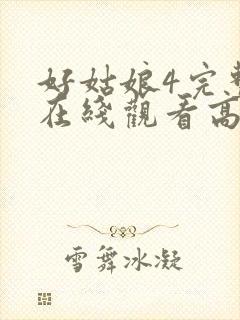 好姑娘4完整
在綫觀看高
雪舞冰凝